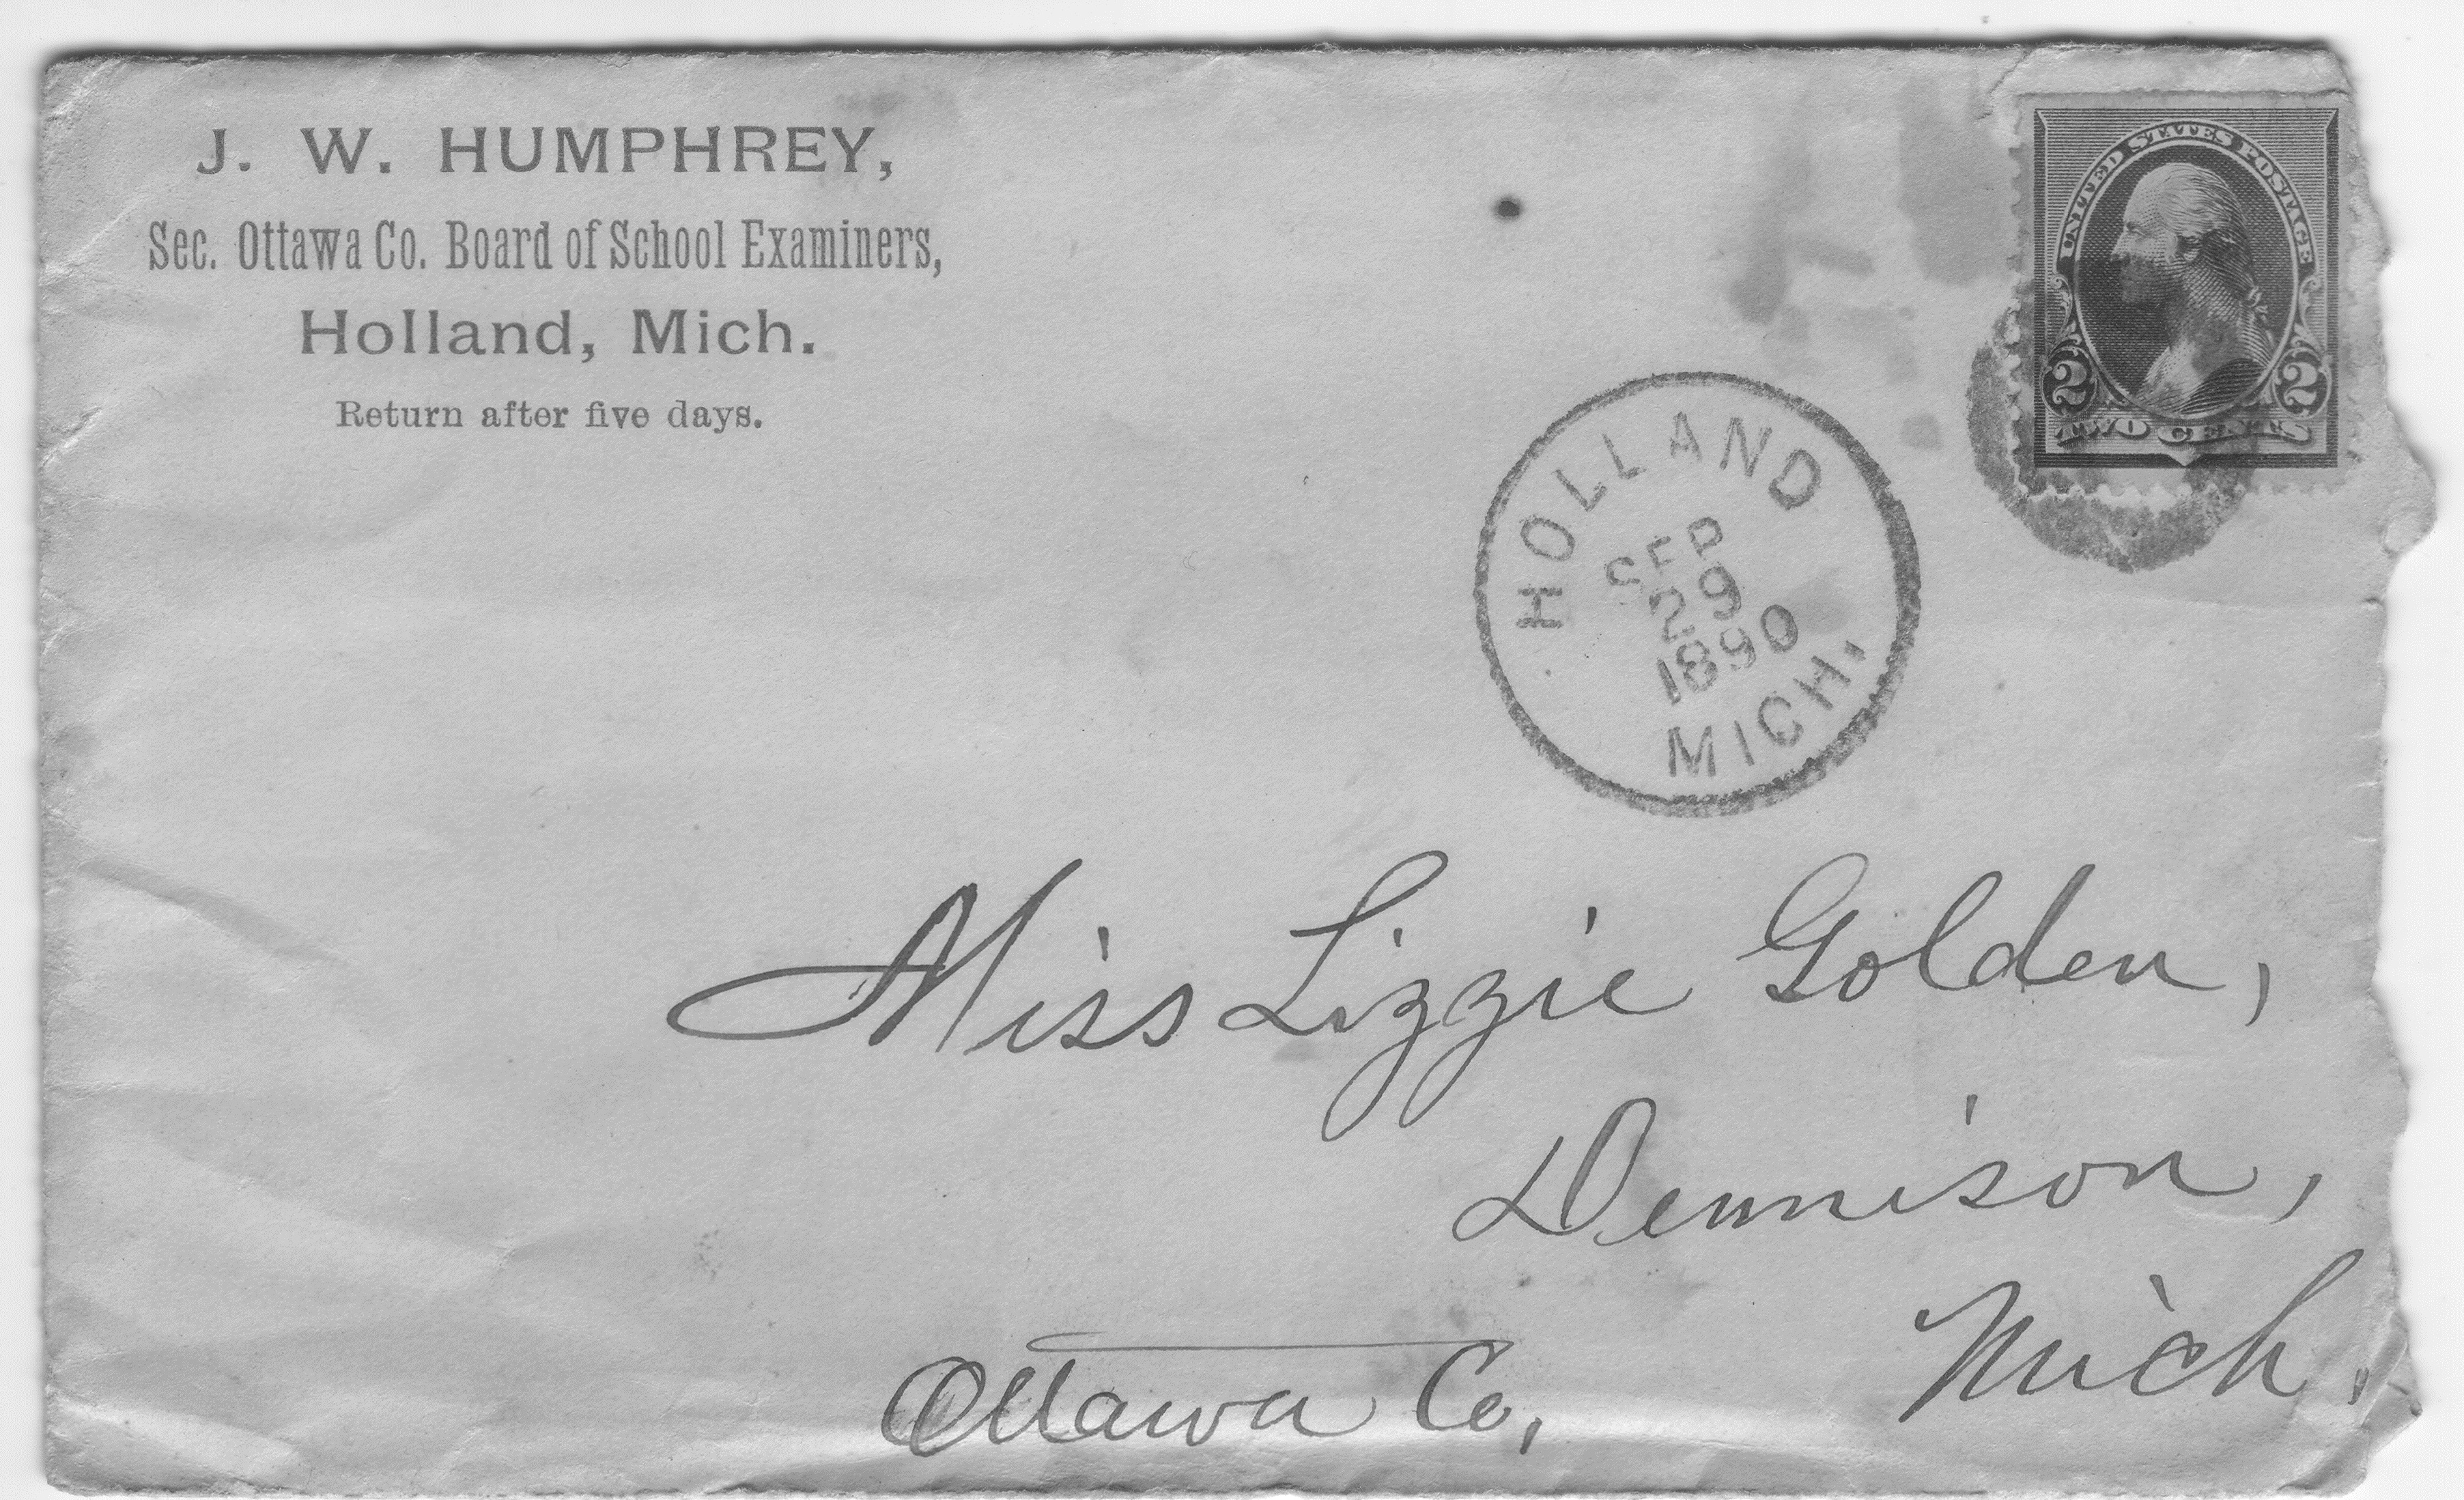 J. W. HUMPHREY,
Sec. Ottawa Co. Board of School Examiners,
Holland, Mich.
Return after five days.
UNITED STATES POSTAGE
2 2
TWO CENTS
HOLLAND
SEP
29
1890
MICH.
Miss Lizzie Golden,
Dennison,
Mich.
Ottawa Co,